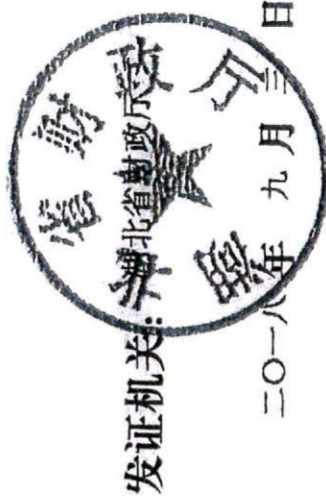 发证机关:湖北省财政厅
二〇一八年 九月 三 日
湖北省财政厅